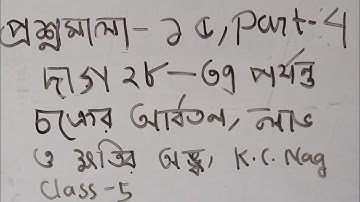 প্রশ্নমালা - ১৫, Part-4
দাগ ২৮ - ৩৭ পর্যন্ত
চক্রের আবর্তন, লাভ
ও ক্ষতির অঙ্ক, K.C. Nag
Class-5